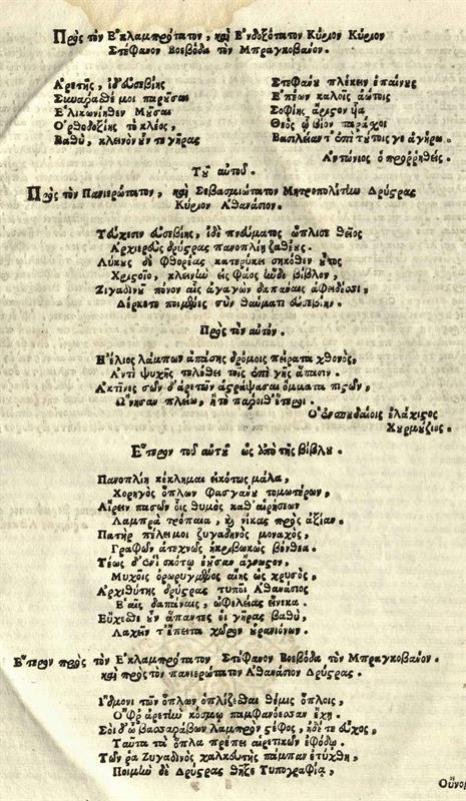 Πρὸς τὸν Ἐκλαμπρότατον, καὶ Ἐνδοξότατον Κύριον Κύριον
Στέφανον Βοεβόδα τὸν Μπραγκοβαῖον.
Ἀρετῆς, ἰδ' εὐσεβίης
Ἑλικωνίηθεν Μοῦσαι
Ὀρθοδοξίης τὸ κλέος,
Βαθὺ, κλεινὸν γῆρας
Στεφάνου πλέκειν ἐπαίνους
Ἐπέων καλοῖς ἀώτοις
Σοφίης ἄριστον
Θεὸς βίον παράχοι
Βασιλείαν τ' ἐπὶ τούτοις γε ἀγήρω.
Ἀντώνιος ὁ προῤῥηθείς.
Τοῦ αὐτοῦ.
Πρὸς τὸν Πανιερώτατον, καὶ Σεβασμιώτατον Μητροπολίτην Δρύστρας
Κύριον Ἀθανάσιον.
εὐσεβίης, ἠδὲ πνεύματος ὥπλισε θεῖος
Ἀρχιερεὺς δρύστρας πανοπλίῃ ζαθέῃ.
Λύκους δὲ φθορέας κατερύκει σηκόθεν
Χριστοῖο, κλεινὴν ἐς φάος βίβλον,
Ζιγαδινοῦ πόνον αἷς ἀγαγὼν δαπάναις
Δέρκετο ποίμνης σὺν θαύματι
Πρὸς τὸν αὐτόν.
Ἠέλιος λάμπων ἁπάσης δρόμοις πείρατα χθονὸς,
Ἀντὶ ψυχῆς τελέθει τοῖς ἐπὶ γῆς ἅπασιν.
Ἀκτῖνες σῶν δ' ἀρετῶν ἀστράψασαι ὄμματα πιστῶν,
Ὤνησαν πλεῖω, ἢ τὸ παροιθότεροι.
Ὁ ἐν σπουδαίοις ἐλάχιστος
Χυρμούζιος.
Ἕτερον τοῦ αὐτοῦ ὡς ὑπὸ τῆς βίβλου.
Πανοπλίη κέκλημαι εἰκότως μάλα,
Χορηγὸς ὅπλων φασγάνου τομωτέρων,
Αἴρειν πασῶν οἷς θυμὸς καθαιρήσων
Λαμπρὰ τρόπαια, καὶ νίκας πρὸς ἀξίαν.
Πατὴρ πέλει μοι ζυγαδηνὸς μοναχὸς,
Γραφῶν ἀτεχνῶς ἠκριβωκὼς βένθεα.
Τέως δ' ἐν σκότῳ ἄγνωστον,
Μυχοῖς ὀρωρυγμένος αἴης ὡς χρυσὸς,
Ἀρχιθύτης δρύστρας τυποῖ Ἀθανάσιος
δαπάναις, ὠφελείας εἵνεκα.
Εὔχεσθε οὖν ἅπαντες οἱ γῆρας βαθὺ,
Λαχεῖν τ' ἔπειτα χῶρον οὐρανιόνων.
Ἕτερον πρὸς τὸν Ἐκλαμπρότατον Στέφανον Βοεβόδα τὸν Μπραγκοβαῖον.
καὶ πρὸς τὸν πανιερώτατον Ἀθανάσιον Δρύστρας.
Ἴδμονι τῶν ὅπλων ὁπλίζεσθαι θέμις ὅπλοις,
Ὄφρ' ἀρετὴν κόσμῳ παμφανόωσαν ἔχῃ.
Σοὶ δ' ὦ βασσαράβων λαμπρὸν στέφος, ἠδέ τε εὖχος,
Ταῦτα τὰ ὅπλα πρέπει αἱρετικῶν ἐφόδῳ.
Τῶν ῥα Ζυγαδινὸς χαλκευτὴς πάμπαν ἐτύχθη,
Ποιμὴν δὲ Δρύστρας θῆξε Τυπογραφίᾳ,
Οὔνομ